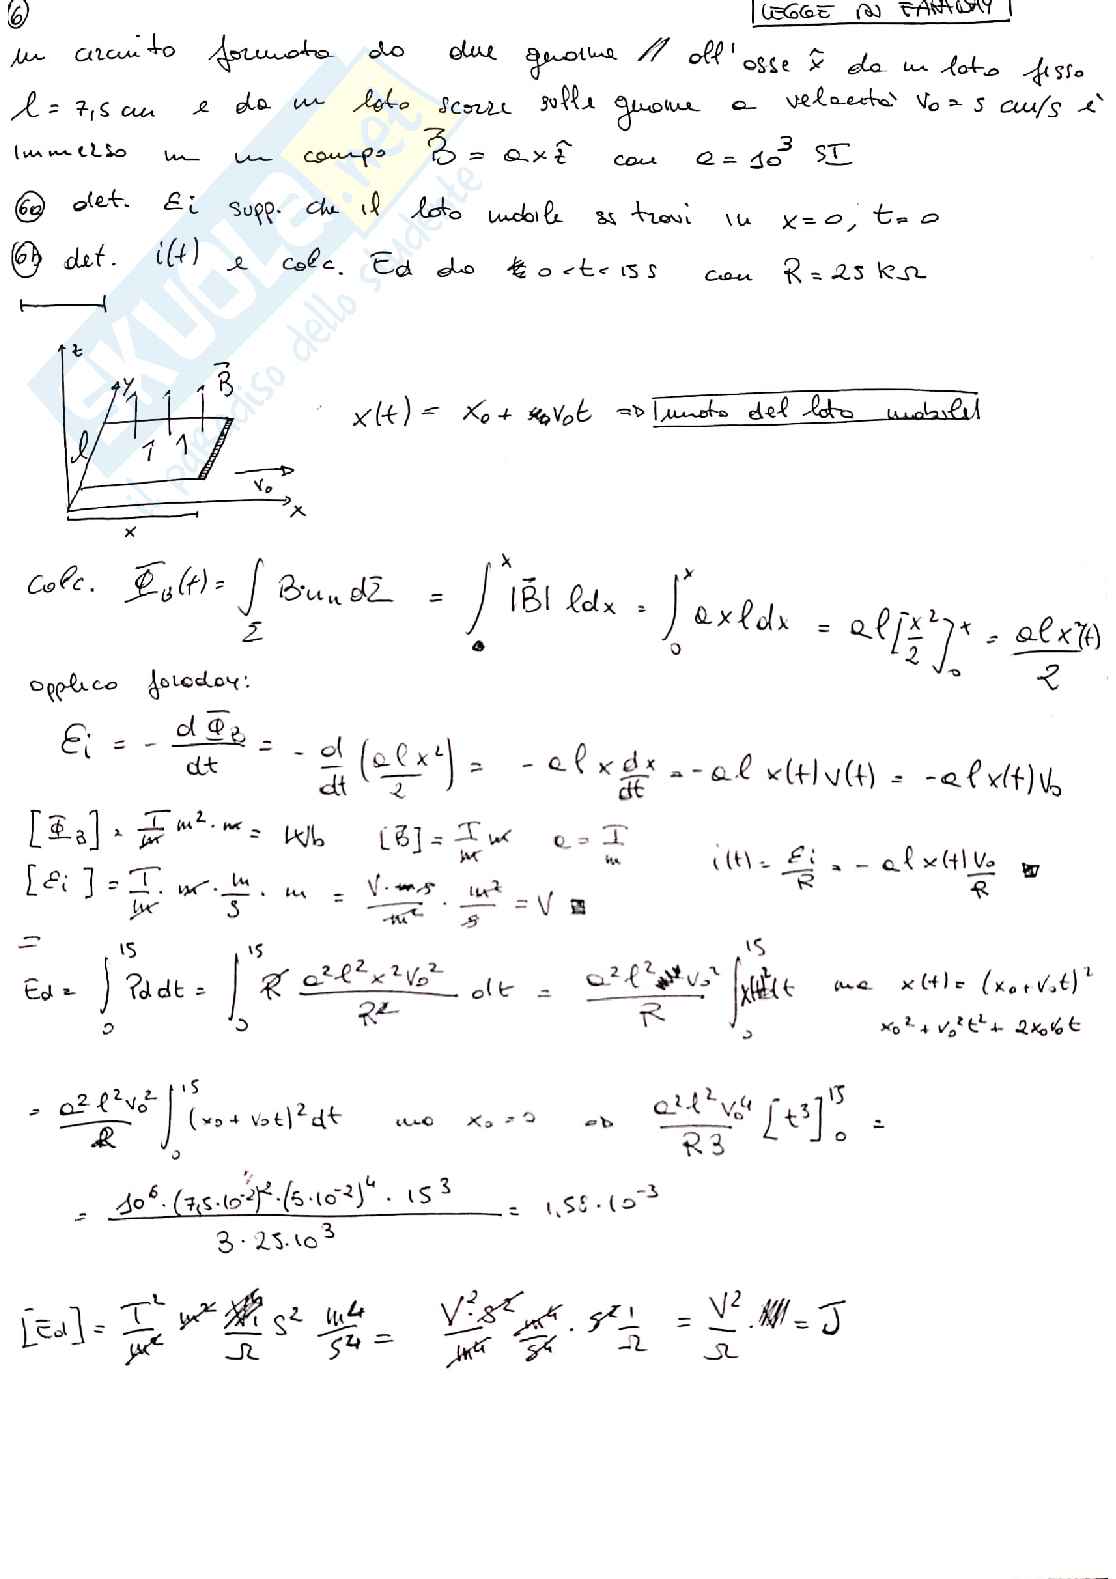 6
LEGGE DI FARADAY
un circuito formato da due guaine // all'asse x̂ da un lato fisso
l = 7,5 cm e da un lato scorre sulle guaine a velocità v₀ = 5 cm/s è
immerso in un campo B̄ = axẑ con a = 10³ SI
6a det. εi supp. che il lato mobile si trovi in x=0, t=0
6b det. i(t) e calc. Ed da 0<t<15 s con R = 25 kΩ
SKUOLA.net
il paradiso dello studente
z
y
B̄
l
v₀
x
x
x(t) = x₀ + v₀t ⇒ moto del lato mobile
Calc. Φ̄_B(t) = ∫_Σ B·uₙ dΣ = ∫₀ˣ |B̄| l dx = ∫₀ˣ a x l dx = al[x²/2]₀ˣ = alx²(t)/2
applico faraday:
εi = - dΦ̄_B/dt = - d/dt (alx²/2) = - al x dx/dt = - al x(t) v(t) = - al x(t) v₀
[Φ̄_B] = T/m m²·m = Wb [B̄] = T/m m a = T/m
i(t) = εi/R = - al x(t) v₀/R
[εi] = T/m · m · m/s · m = V·s/m² · m²/s = V
=
Ed = ∫₀¹⁵ Pd dt = ∫₀¹⁵ R a²l²x²v₀²/R² dt = a²l²v₀²/R ∫₀¹⁵ x(t)² dt ma x(t) = (x₀ + v₀t)²
x₀² + v₀²t² + 2x₀v₀t
= a²l²v₀²/R ∫₀¹⁵ (x₀ + v₀t)² dt ma x₀ = 0 ⇒ a²l²v₀⁴/R3 [t³]₀¹⁵ =
= 10⁶·(7,5·10⁻²)²·(5·10⁻²)⁴·15³ / 3·25·10³ = 1,58·10⁻³
[Ed] = T²/m² m² 1/Ω s² m⁴/s⁴ = V²·s²/m⁴ m⁴/s⁴ · s² 1/Ω = V²/Ω · = J